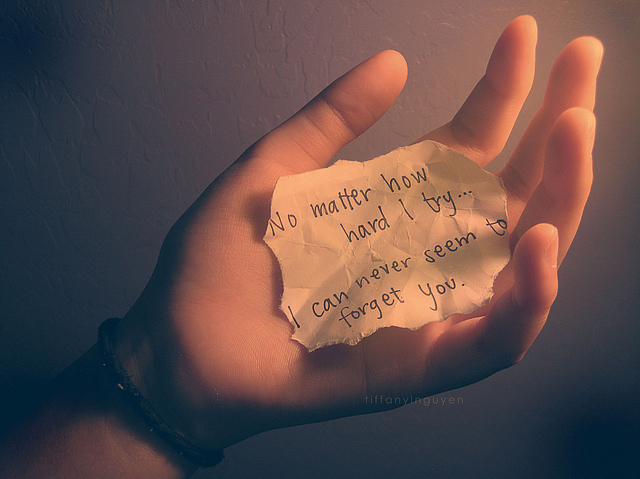 No matter how
hard I try...
I can never seem to
forget you.
tiffanylnguyen